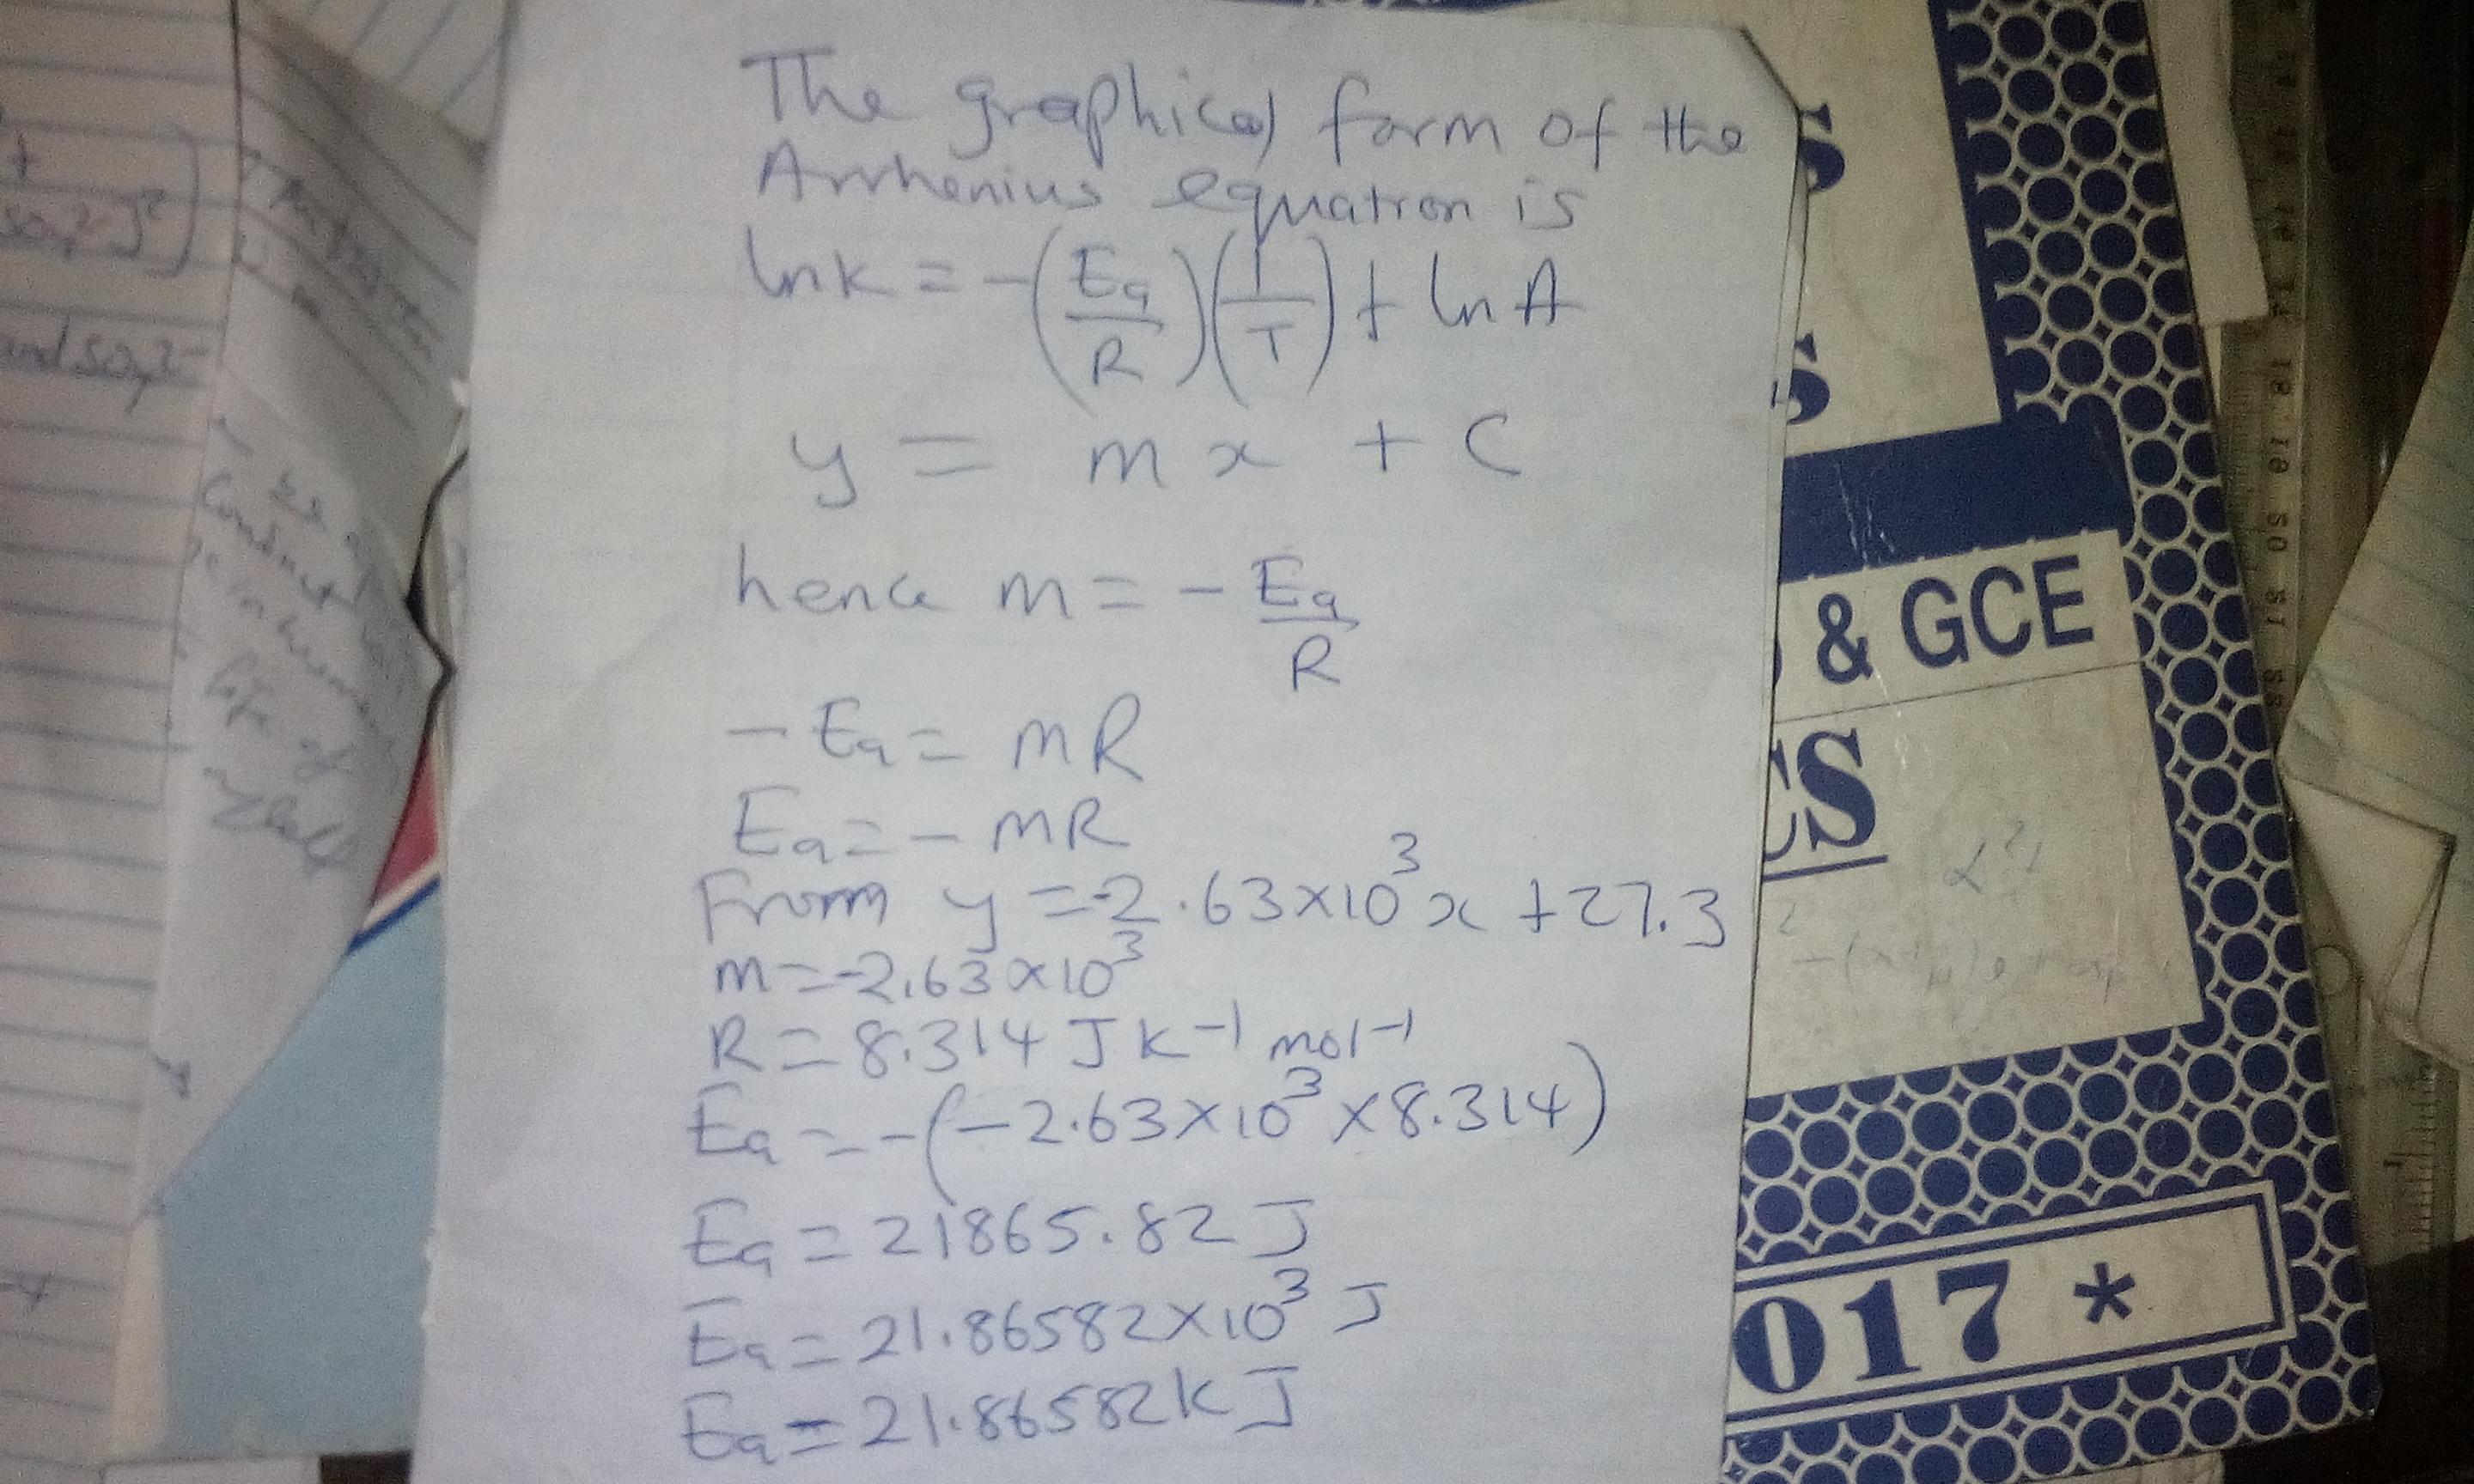 The graphical form of the
Arrhenius equation is
lnk = -(Ea/R)(1/T) + ln A
y = m x + C
hence m = - Ea/R
- Ea = mR
Ea = - mR
From y = -2.63×10³x + 27.3
m = -2.63×10³
R = 8.314 J k⁻¹ mol⁻¹
Ea = -(-2.63×10³×8.314)
Ea = 21865.82 J
Ea = 21.86582×10³ J
Ea = 21.86582kJ
S
S
& GCE
CS
017 *
and SO₄²⁻